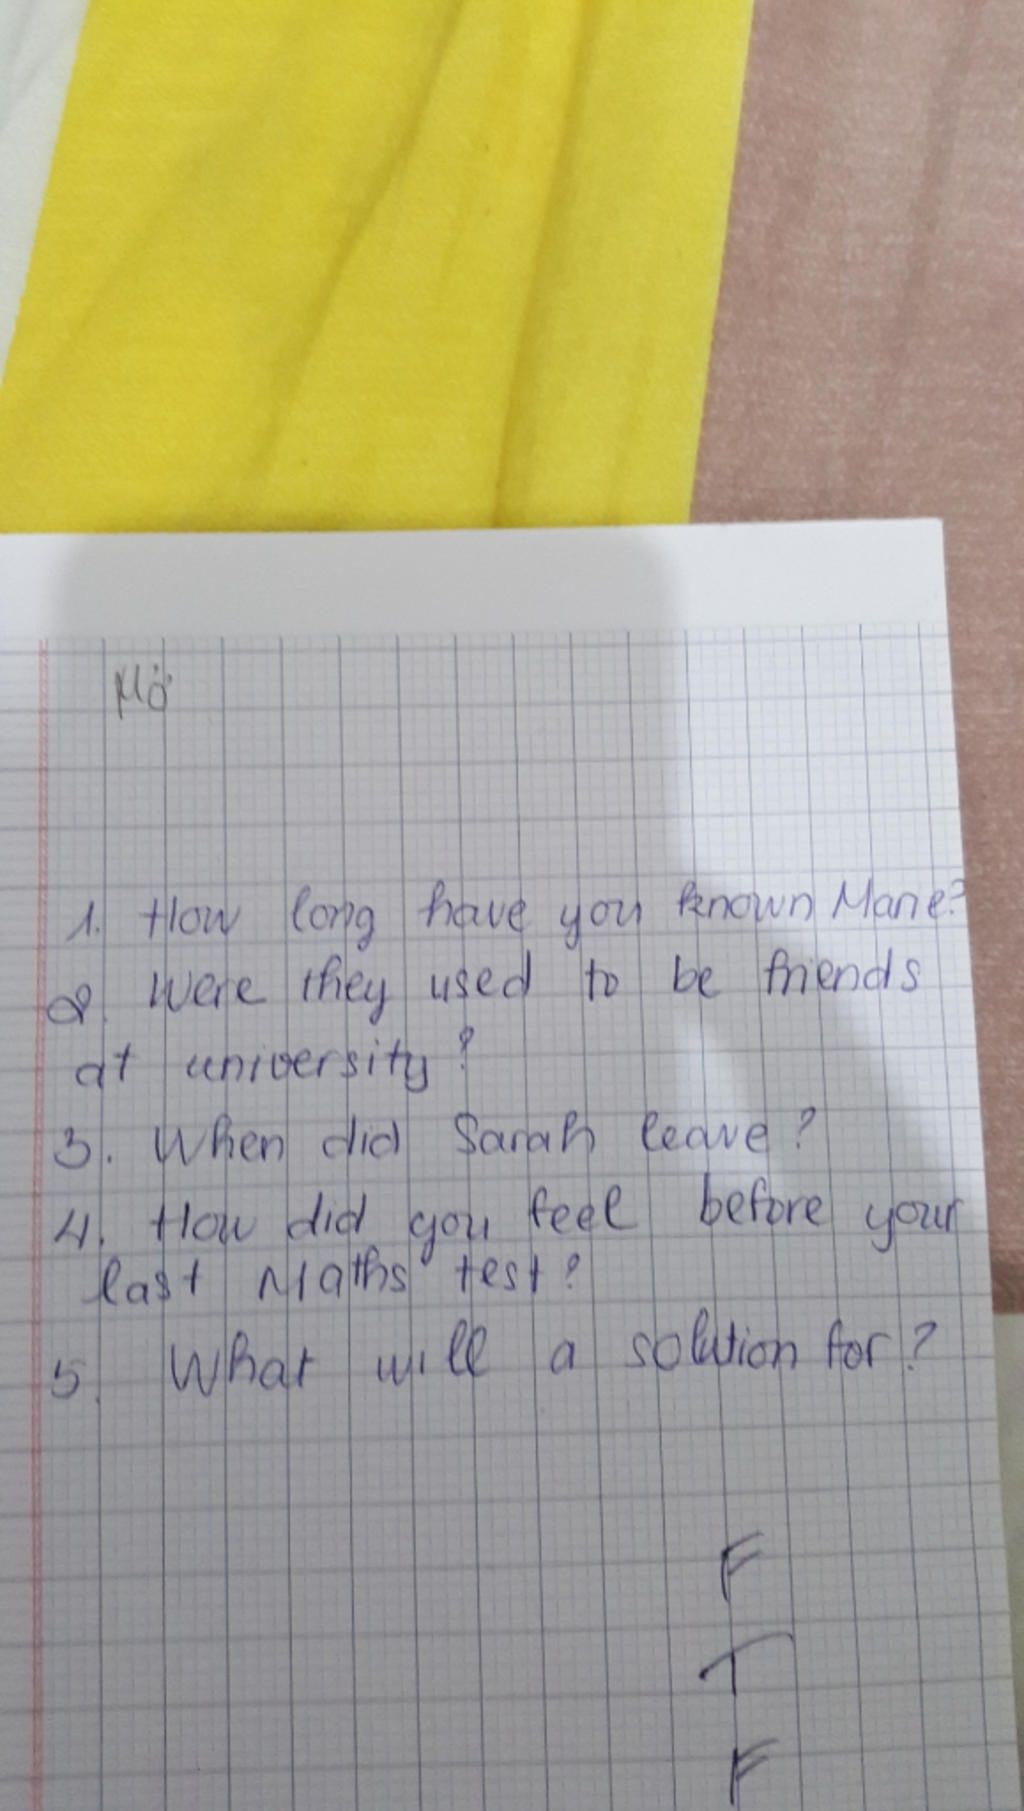 1. How long have you known Marie?
2. Were they used to be friends
at university?
3. When did Sarah leave?
4. How did you feel before your
last Maths test?
5. What will a solution for?
F
T
F